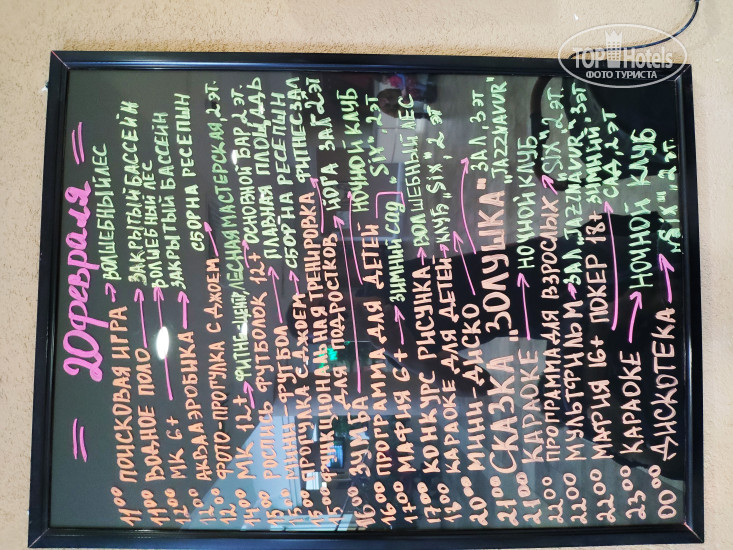 = 20 февраля =
11⁰⁰ ПОИСКОВАЯ ИГРА → ВОЛШЕБНЫЙ ЛЕС
11⁰⁰ ВОДНОЕ ПОЛО → ЗАКРЫТЫЙ БАССЕЙН
11⁰⁰ МК 6+ ВОЛШЕБНЫЙ ЛЕС
12⁰⁰ АКВААЭРОБИКА → ЗАКРЫТЫЙ БАССЕЙН
12⁰⁰ ФОТО-ПРОГУЛКА С ДЖОЕМ СБОР НА РЕСЕПШН
12⁰⁰ МК 12+ → ФИТНЕС-ЦЕНТР/ЛЕСНАЯ МАСТЕРСКАЯ 2 ЭТ.
14⁰⁰ РОСПИСЬ ФУТБОЛОК 12+ ОСНОВНОЙ БАР, 2 ЭТ.
15⁰⁰ МИНИ-ФУТБОЛ → ГЛАВНАЯ ПЛОЩАДЬ
15⁰⁰ ПРОГУЛКА С ДЖОЕМ → СБОР НА РЕСЕПШН
15⁰⁰ ФУНКЦИОНАЛЬНАЯ ТРЕНИРОВКА ФИТНЕС ЗАЛ
ДЛЯ ПОДРОСТКОВ ЙОГА ЗАЛ 2 ЭТ
16⁰⁰ ЗУМБА
16⁰⁰ ПРОГРАММА ДЛЯ ДЕТЕЙ НОЧНОЙ КЛУБ "SIX", 2 ЭТ
17⁰⁰ МАФИЯ 6+ → ЗИМНИЙ САД
17⁰⁰ КОНКУРС РИСУНКА → ВОЛШЕБНЫЙ ЛЕС
18 КАРАОКЕ ДЛЯ ДЕТЕЙ КЛУБ "SIX", 2 ЭТ
20⁰⁰ МИНИ ДИСКО
21⁰⁰ СКАЗКА "ЗОЛУШКА" ЗАЛ, 3 ЭТ "JAZZNAVUR"
21⁰⁰ КАРАОКЕ → НОЧНОЙ КЛУБ
22⁰⁰ ПРОГРАММА ДЛЯ ВЗРОСЛЫХ "SIX" 2 ЭТ.
22⁰⁰ МУЛЬТФИЛЬМ → ЗАЛ "JAZZNAVUR", 3 ЭТ
22⁰⁰ МАФИЯ 16+ ПОКЕР 18+ ЗИМНИЙ САД, 2 ЭТ.
23⁰⁰ КАРАОКЕ → НОЧНОЙ КЛУБ
00⁰⁰ ДИСКОТЕКА → "SIX", 2 ЭТ.
TOPHotels
ФОТО ТУРИСТА